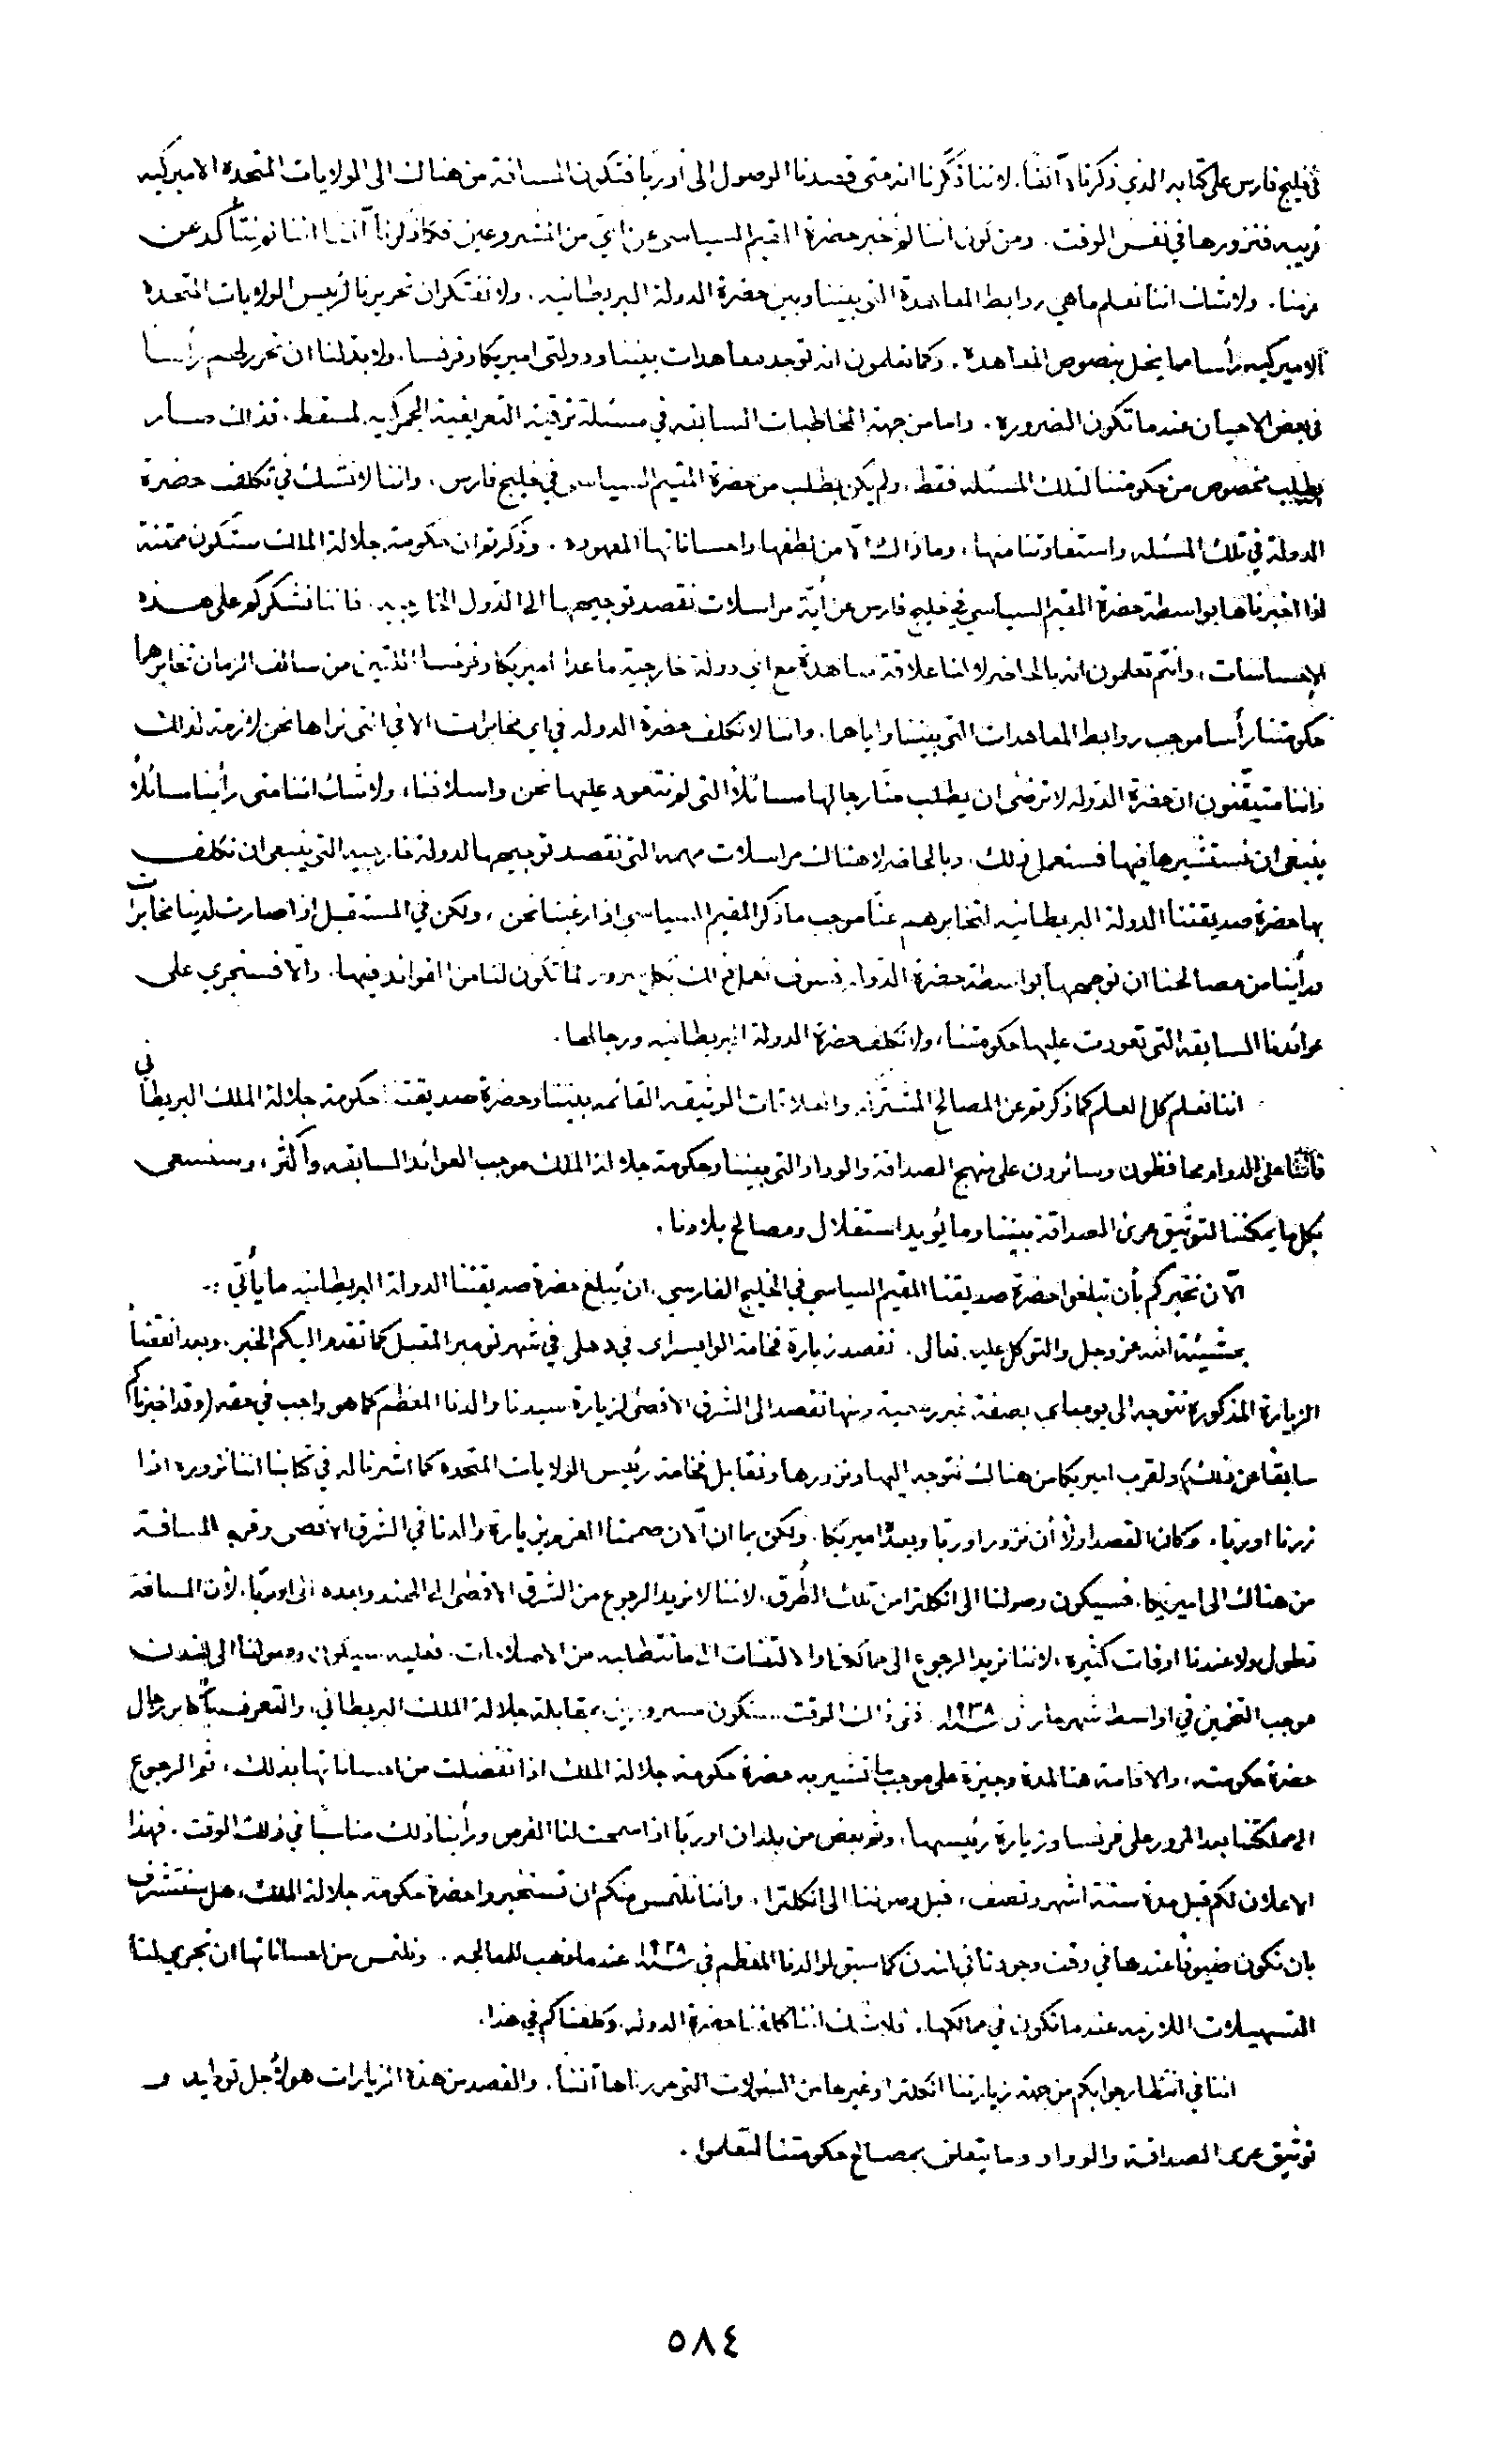 في خليج فارس على كتابه الذي ذكرناه آنفاً. لاننا ذكرنا انه متى قصدنا الوصول الى اوربا فتكون المسافة من هناك الى الولايات المتحدة الاميركيه
قريبه فنزورها في نفس الوقت. ومن كون اننا لم نخبر حضرة المقيم السياسي عن اي من المشروعين فكما ذكرنا آنفا اننا لم نتأكد عن
عزمنا. ولا شك اننا نعلم ما هي روابط المعاهدة التي بيننا وبين حضرة الدولة البريطانيه. ولا نفتكر ان تحريرنا لرئيس الولايات المتحدة
الاميركيه رأسا مما يخل بنصوص المعاهدة. وكما تعلمون انه توجد معاهدات بيننا ودولتي اميركا وفرنسا. ولا بد لنا ان نحرر لهم رأسا
في بعض الاحيان عندما تكون الضروره. واما من جهة المخاطبات السابقه في مسئلة ترقية التعريفية الجمركيه لمسقط. فذاك صار
بطلب مخصوص من حكومتنا لتلك المسئله فقط، ولم يكن بطلب من حضرة المقيم السياسي في خليج فارس. واننا لا نشك في تكلف حضرة
الدولة في تلك المسئله واستفادتنا منها، وما ذاك الّا من لطفها واحساناتها المعهوده. وذكرتم ان حكومة جلالة الملك ستكون ممتنة
اذا اخبرناها بواسطة حضرة المقيم السياسي في خليج فارس عن أية مراسلات نقصد توجيهها الى الدول الخارجيه. فاننا نشكركم على هذه
الاحساسات، وانتم تعلمون انه بالحاضر لا لنا علاقة معاهدة مع اي دولة خارجية ما عدا اميركا وفرنسا اللتين من سالف الزمان تخابرهما
حكومتنا رأسا موجب روابط المعاهدات التي بيننا واياهما. واننا لا نكلف حضرة الدوله في اي مخابرات الا في التي نراها نحن لازمة لذلك
واننا متيقنون ان حضرة الدوله لا ترضى ان يطلب منّا رجالها مسائلاً التي لم نتعود عليها نحن واسلافنا، ولا شك اننا متى رأينا مسائلاً
ينبغي ان نستشيرها فيها فسنعمل ذلك. وبالحاضر لا هناك مراسلات مهمه التي نقصد توجيهها لدولة خارجيه التي ينبغي ان نكلف
بها حضرة صديقتنا الدولة البريطانيه لتخابرهم عنّا موجب ما ذكر المقيم السياسي اذا رغبنا نحن، ولكن في المستقبل اذا صارت لدينا مخابرات
ورأينا من مصالحنا ان نوجهها بواسطة حضرة الدوله فسوف نعمل ذلك بكل سرور لما تكون لنا من الفوائد فيها. والّا فسنجري على
عوائدنا السابقه التي تعودت عليها حكومتنا، ولا نكلف حضرة الدولة البريطانيه ورجالها.
اننا نعلم كل العلم كما ذكرتم عن المصالح المشتركه والعلاقات الوثيقه القائمه بيننا وحضرة صديقتنا حكومة جلالة الملك البريطاني
فاننا على الدوام محافظون وسائرون على منهج الصداقة والوداد التي بيننا وحكومة جلالة الملك موجب العوائد السابقه وأكثر، وسنسعى
بكل ما يمكننا لتوثيق عرى الصداقة بيننا وما يؤيد استقلال ومصالح بلادنا.
الآن نخبركم بأن تبلغوا حضرة صديقنا المقيم السياسي في الخليج الفارسي. ان يُبلغ حضرة صديقتنا الدولة البريطانيه ما يأتي :-
بمشيئة الله عز وجل والتوكل عليه تعالى. نقصد زيارة فخامة الوايسراى في دهلي في شهر نومبر المقبل كما تقدم اليكم الخبر. وبعد انقضاء
الزيارة المذكورة نتوجه الى بومباي بصفة غير رسمية ومنها نقصد الى الشرق الاقصى لزيارة سيدنا والدنا المعظم كما هو واجب في حقه (وقد اخبرناكم
سابقاً عن ذلك) ولقرب اميركا من هناك نتوجه اليها ونزورها ونقابل فخامة رئيس الولايات المتحدة كما اشرنا له في كتابنا اننا نزوره اذا
زرنا اوربا. وكان القصد اولاً أن نزور اوربّا وبعدُ اميركا. ولكن بما ان الآن صممنا العزم بزيارة والدنا في الشرق الاقصى وقرب المسافة
من هناك الى اميركا. فسيكون وصولنا الى انكلترا من تلك الطُرق، لاننا لا نريد الرجوع من الشرق الاقصى الى الهند وبعده الى اوربّا. لأن المسافة
تطول ولا عندنا اوقات كثيره، لاننا نريد الرجوع الى ممالكنا والالتفات الى ما تتطلبه من الاصلاحات. فعليه سيكون وصولنا الى لندن
موجب التخمين في اواسط شهر مارث سنة ١٩٣٨. ففي ذلك الوقت سنكون مسرورين بمقابلة جلالة الملك البريطاني، والتعرف بأكابر رجال
حضرة حكومته، والاقامة هنا لمدة وجيزة على موجب ما تشير به حضرة حكومة جلالة الملك اذا تفضلت من احساناتها بذلك، ثم الرجوع
الى مملكتنا بعد المرور على فرنسا وزيارة رئيسها، وثم بعض من بلدان اوربّا اذا سمحت لنا الفرص ورأينا ذلك مناسبًا في ذلك الوقت. فهذا
الاعلان لكم قبل مدة ستة اشهر ونصف، قبل وصولنا الى انكلترا. واننا نلتمس منكم ان تستخبروا حضرة حكومة جلالة الملك، هل سنتشرف
بان نكون ضيوفاً عندها في وقت وجودنا في لندن كما سبق لوالدنا المعظم في سنة ١٩٢٨ عندما ذهب للمعالجه. ونلتمس من احساناتها ان تجري لنا
التسهيلات اللازمه عندما نكون في ممالكها. فلا شك اننا كلفنا حضرة الدوله. وكلفناكم في هذا.
اننا في انتظار جوابكم من جهة زيارتنا انكلترا وغيرها من السئولات التي حررناها آنفاً. والقصد من هذه الزيارات هو لأجل توطيد و
توثيق عرى الصداقة والوداد وما يتعلق بمصالح حكومتنا لتعلموا.
٥٨٤